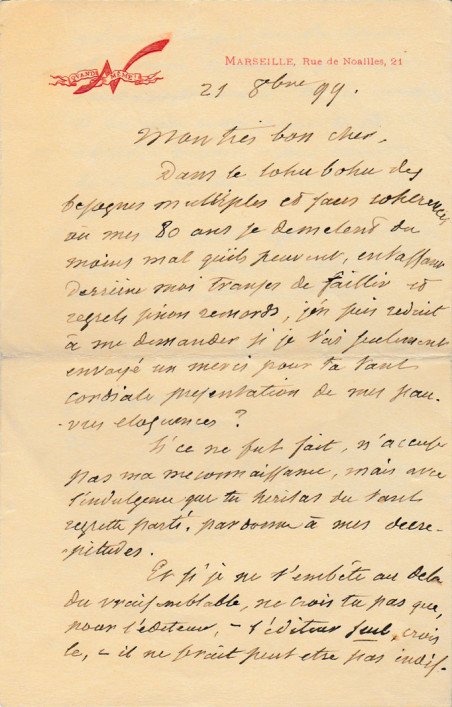 QUAND MÊME
MARSEILLE, Rue de Noailles, 21
21 8bre 99.
Mon très bon cher,
Dans le tohu bohu des
besognes multiples et sans cohérences
où mes 80 ans se démêlent du
moins mal qu'ils peuvent, entassant
derrière moi transes de faillir et
regrets sinon remords, j'en suis réduit
à me demander si je t'ai seulement
envoyé un merci pour ta tant
cordiale présentation de mes pau-
-vres éloquences ?
Si ce ne fut fait, n'accuse
pas ma méconnaissance, mais avec
l'indulgence que tu héritas du tant
regretté parti, pardonne à mes décré-
-pitudes.
Et si je ne t'embête au delà
du vraisemblable, ne crois tu pas que,
pour l'éditeur, – l'éditeur seul, crois
le, – il ne serait peut etre pas indif-